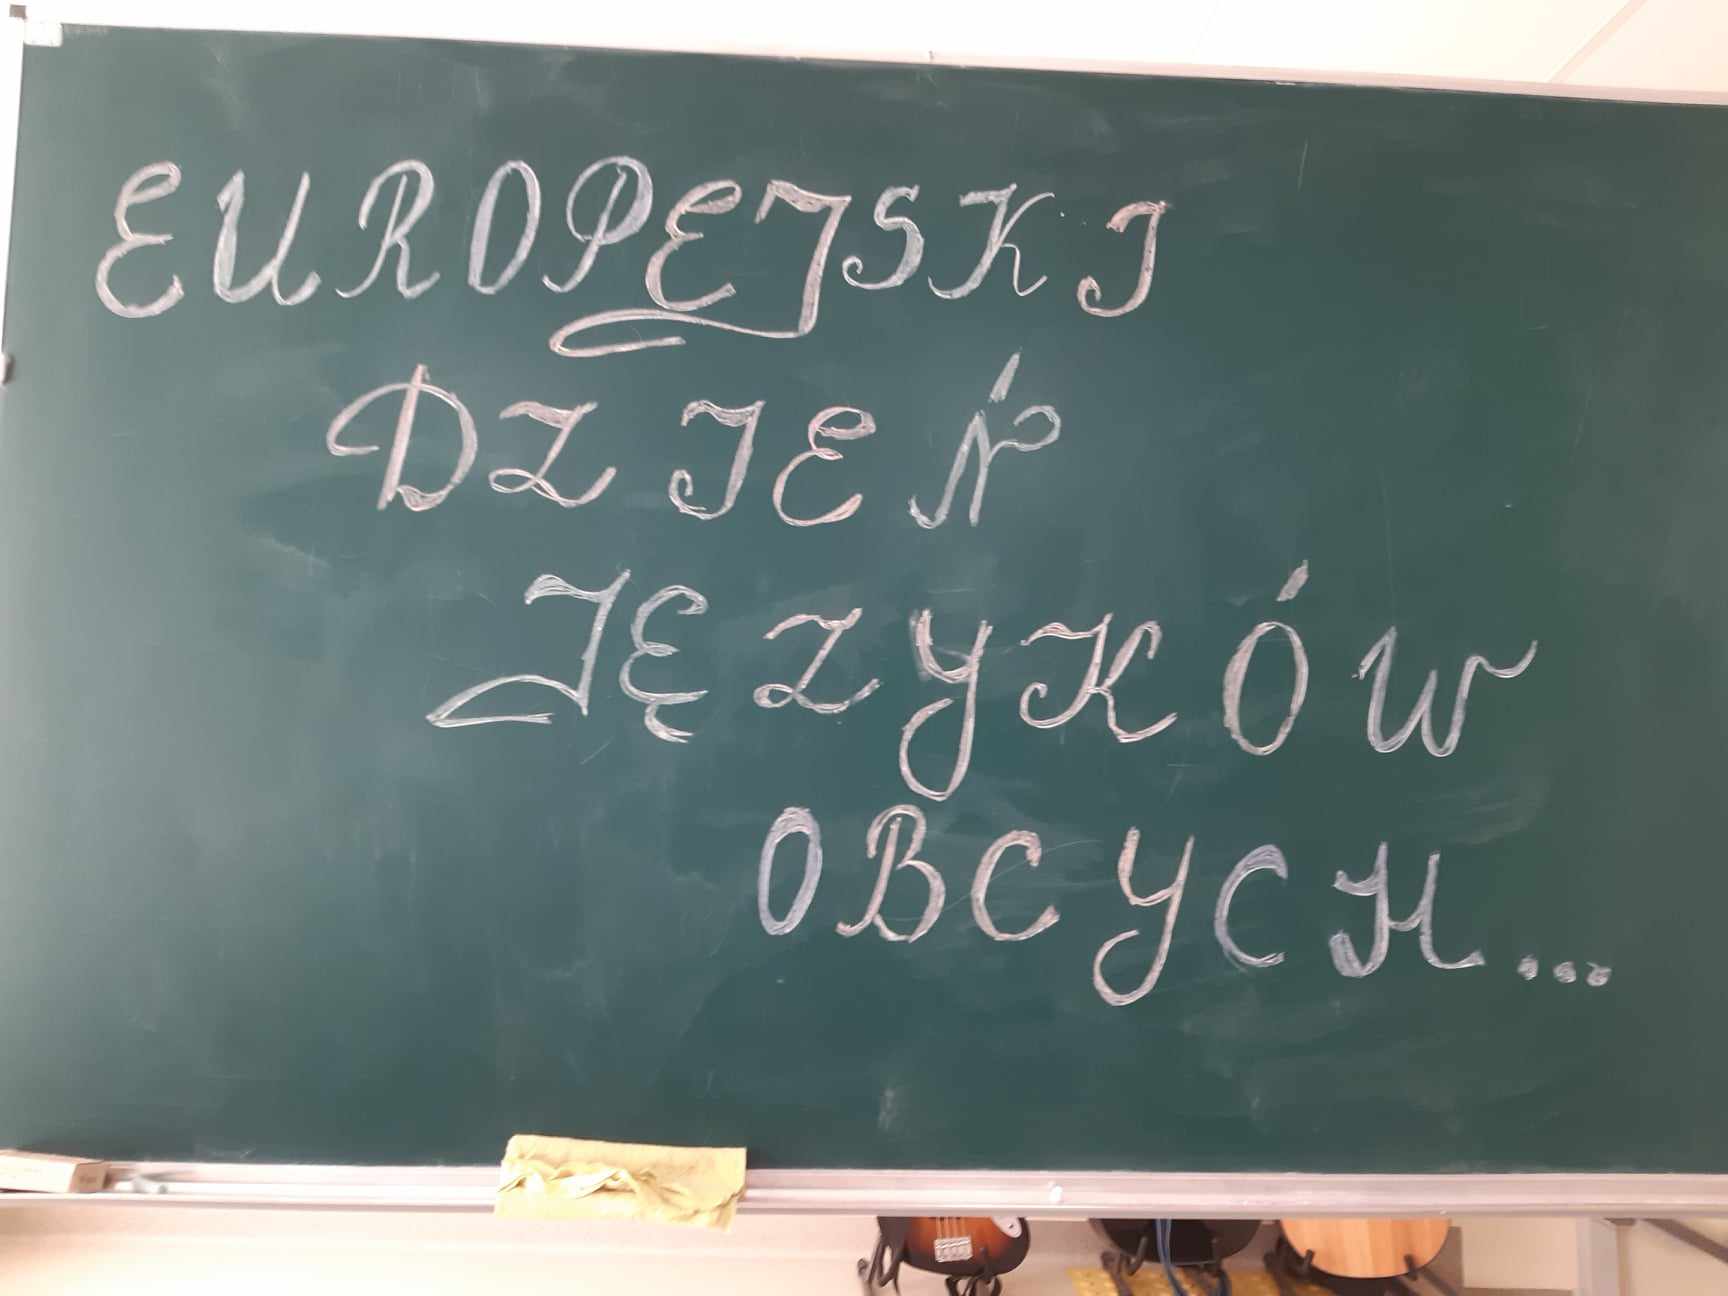 EUROPEJSKI
DZIEŃ
JĘZYKÓW
OBCYCH...